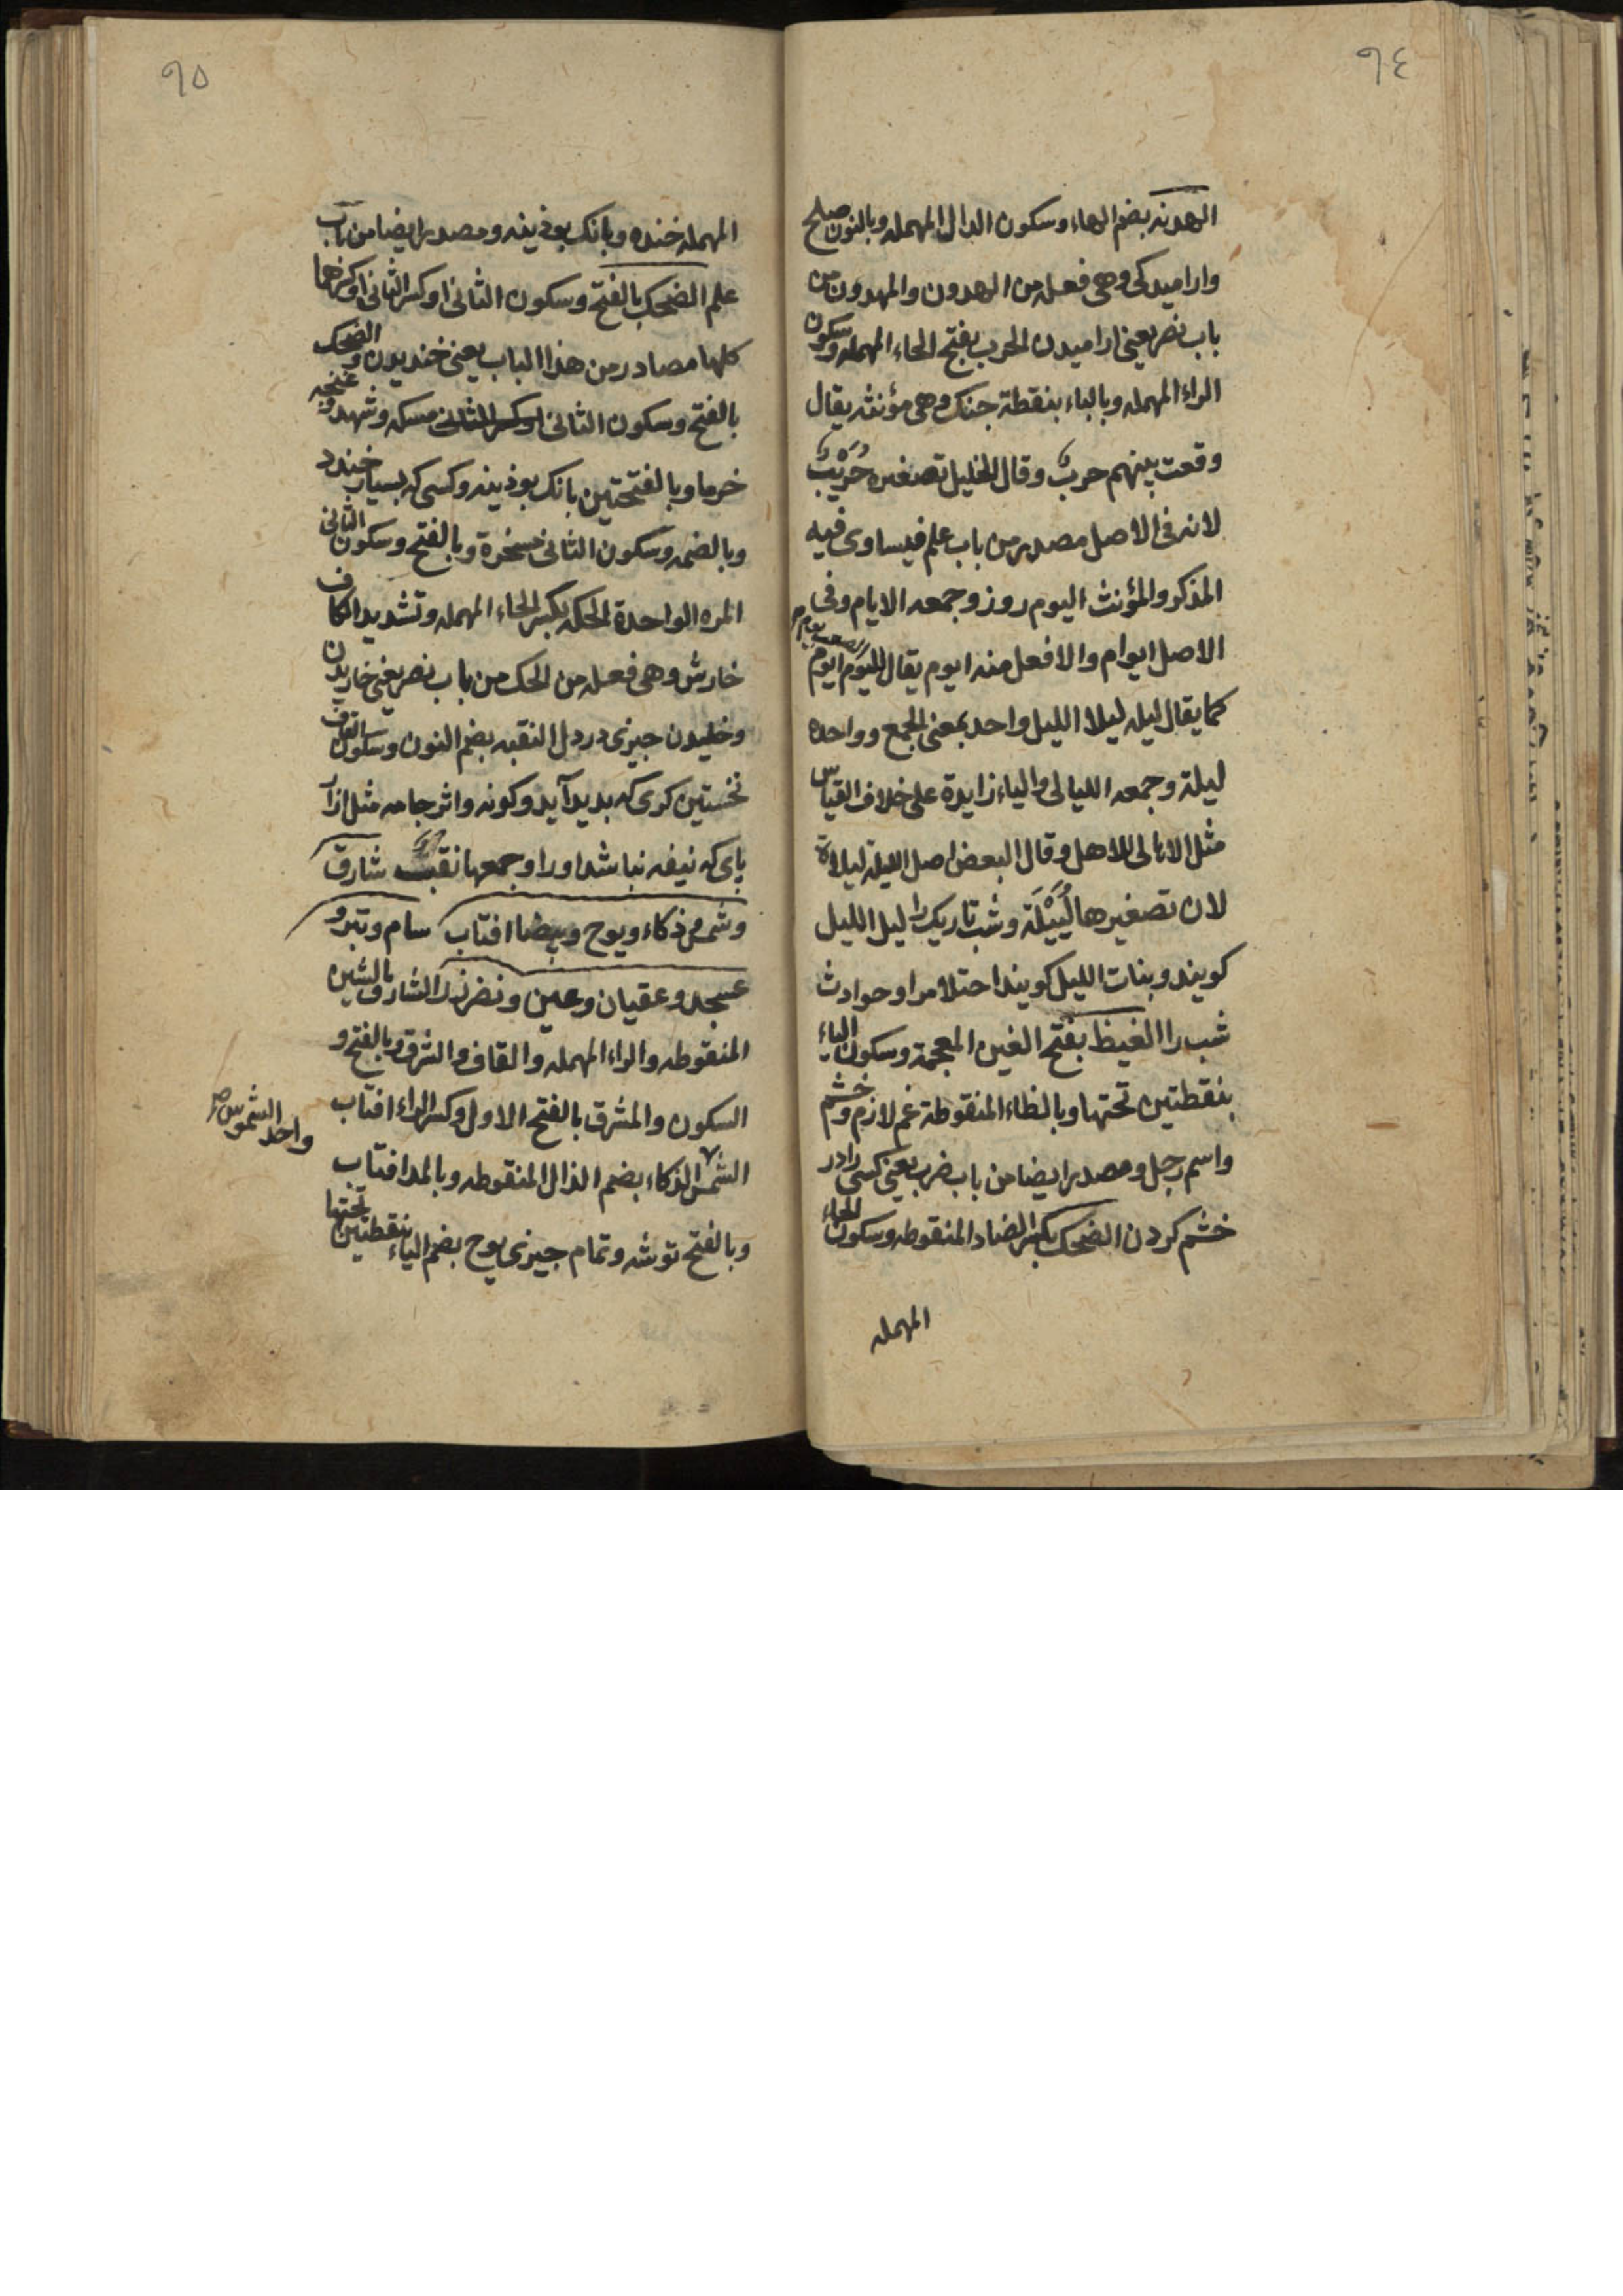 ٩٤
الهدنه بضم الهاء وسكون الدال المهمله وبالنون صلح
واراميدكى وهى فعله من الهدون والمهدون من
باب نصر يعنى اراميدن الحرب بفتح الحاء المهمله وسكون
الراء المهمله وبالباء بنقطة جنك وهى مؤنثه يقال
وقعت بينهم حربٌ وقال الخليل تصغيره حُرَيْبٌ
لانه فى الاصل مصدر من باب علم فيساوى فيه
المذكر والمؤنث اليوم روز وجمعه الايام وفى
الاصل ايوام والافعل منه ايوم يقال لليَوم ايوم
كما يقال ليله ليلا الليل واحد بمعنى الجمع وواحده
ليلة وجمعه الليالى والياء زايدة على خلاف القياس
مثل الاهالى للاهل وقال البعض اصل الليلة ليلاة
لان تصغيرها لُيَيْلَة وشب تاريك را ليل الليل
كويند وبنات الليل كويند احتلام را وحوادث
شب را الغيظ بفتح الغين المعجمة وسكون الياء
بنقطتين تحتها وبالظاء المنقوطة غم لازم وخشم
واسم رجل ومصدر ايضا من باب ضرب يعنى كسى را در
خشم كردن الضحك بكسر الضاد المنقوطه وسكون الحاء
المهمله
٩٥
المهمله خنده وبانك بوذينه ومصدر ايضا من باب
علم الضحك بالفتح وسكون الثانى او كسر الثانى او كسرهما
كلها مصادر من هذا الباب يعنى خنديدن والضحك
بالفتح وسكون الثانى او كسر الثانى مسكه وشهد وغنچه
خرما وبالفتحتين بانك بوذينه وكسى كه بسيار خندد
وبالضمه وسكون الثانى مسخرة وبالفتح وسكون الثانى
المره الواحدة الحكه بكسر الحاء المهمله وتشديد الكاف
خارش وهى فعله من الحك من باب نصر يعنى خاريدن
وخليدن جيزى در دل النقبه بضم النون وسكون القاف
نخستين كرى كه بديد آيد وكونه واثر جامه مثل ازار
پاى كه نيفه نباشد اورا وجمعها نقب شارق
وشمس ذكاء ويوح وبيضا افتاب سام وتبر و
عسجد وعقيان وعين ونضر زر الشارق بالشين
المنقوطه والراء المهمله والقاف والشرق وبالفتح و
السكون والمشرق بالفتح الاول وكسر الراء افتاب
الشمس الذكاء بضم الذال المنقوطه وبالمد افتاب
واحد الشموس صح
وبالفتح توشه وتمام جيزى يوح بضم الياء بنقطتين تحتها